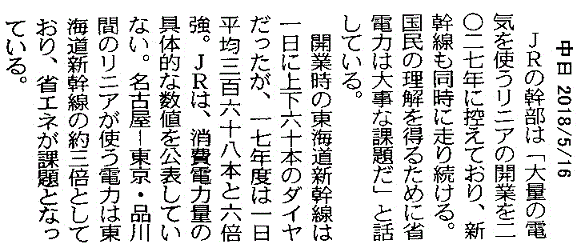 中日 2018/5/16
　ＪＲの幹部は「大量の電
気を使うリニアの開業を二
〇二七年に控えており、新
幹線も同時に走り続ける。
国民の理解を得るために省
電力は大事な課題だ」と話
している。
　開業時の東海道新幹線は
一日に上下六十本のダイヤ
だったが、一七年度は一日
平均三百六十八本と六倍
強。ＪＲは、消費電力量の
具体的な数値を公表してい
ない。名古屋ー東京・品川
間のリニアが使う電力は東
海道新幹線の約三倍として
おり、省エネが課題となっ
ている。